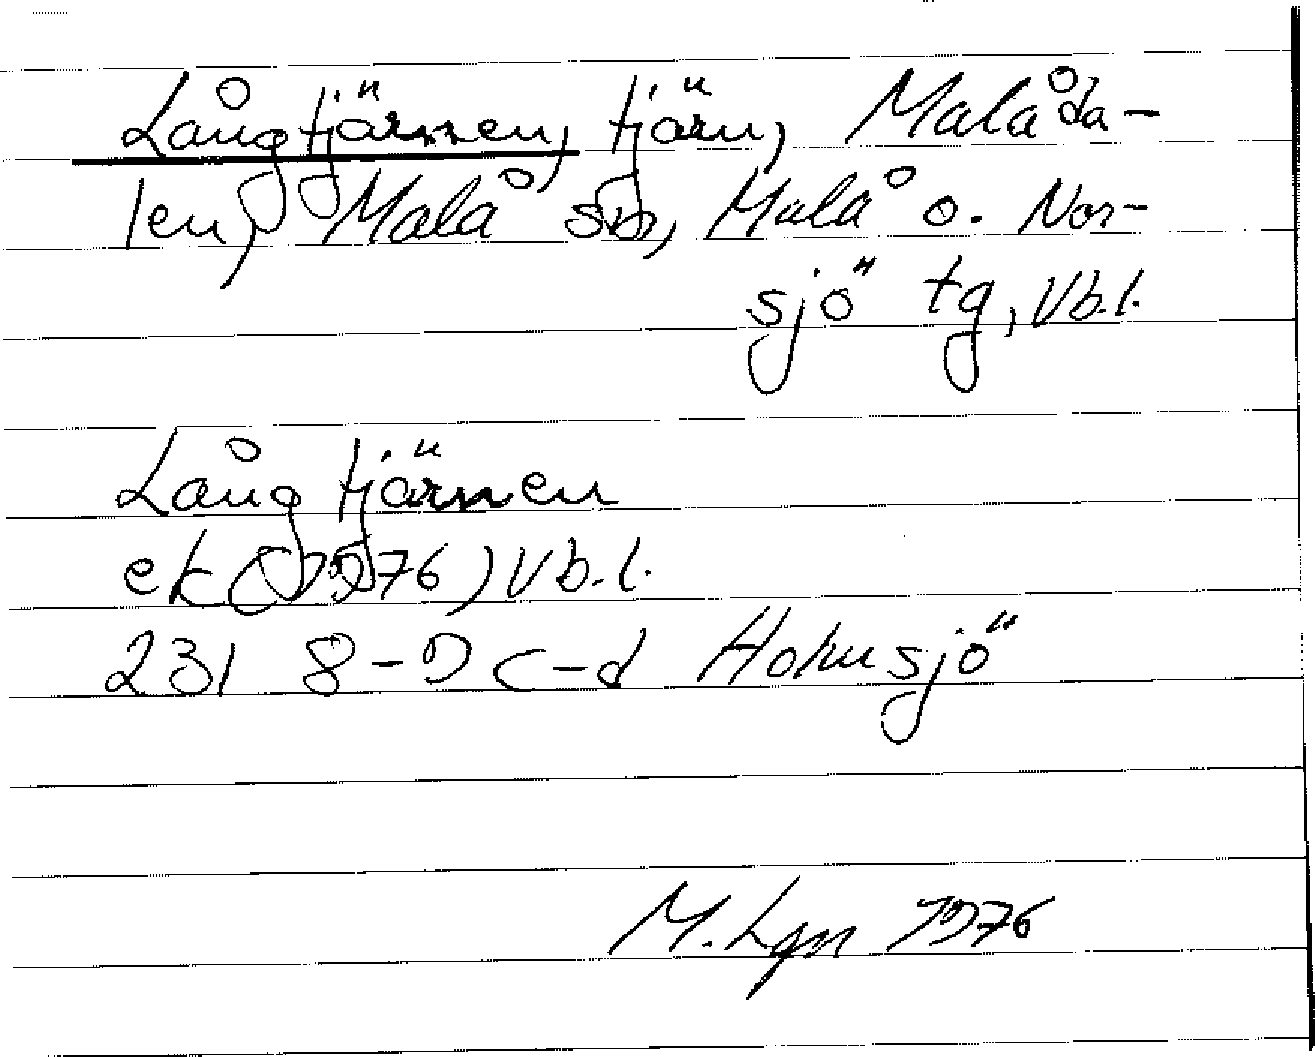 Långtjärnen, tjärn, Malåda-
len, Malå sn, Malå o. Nor-
sjö tg, Vb.l.
Långtjärnen
ek (1976) Vb.l.
231 8-9 c-d Hornsjö
M. Lgn 1976